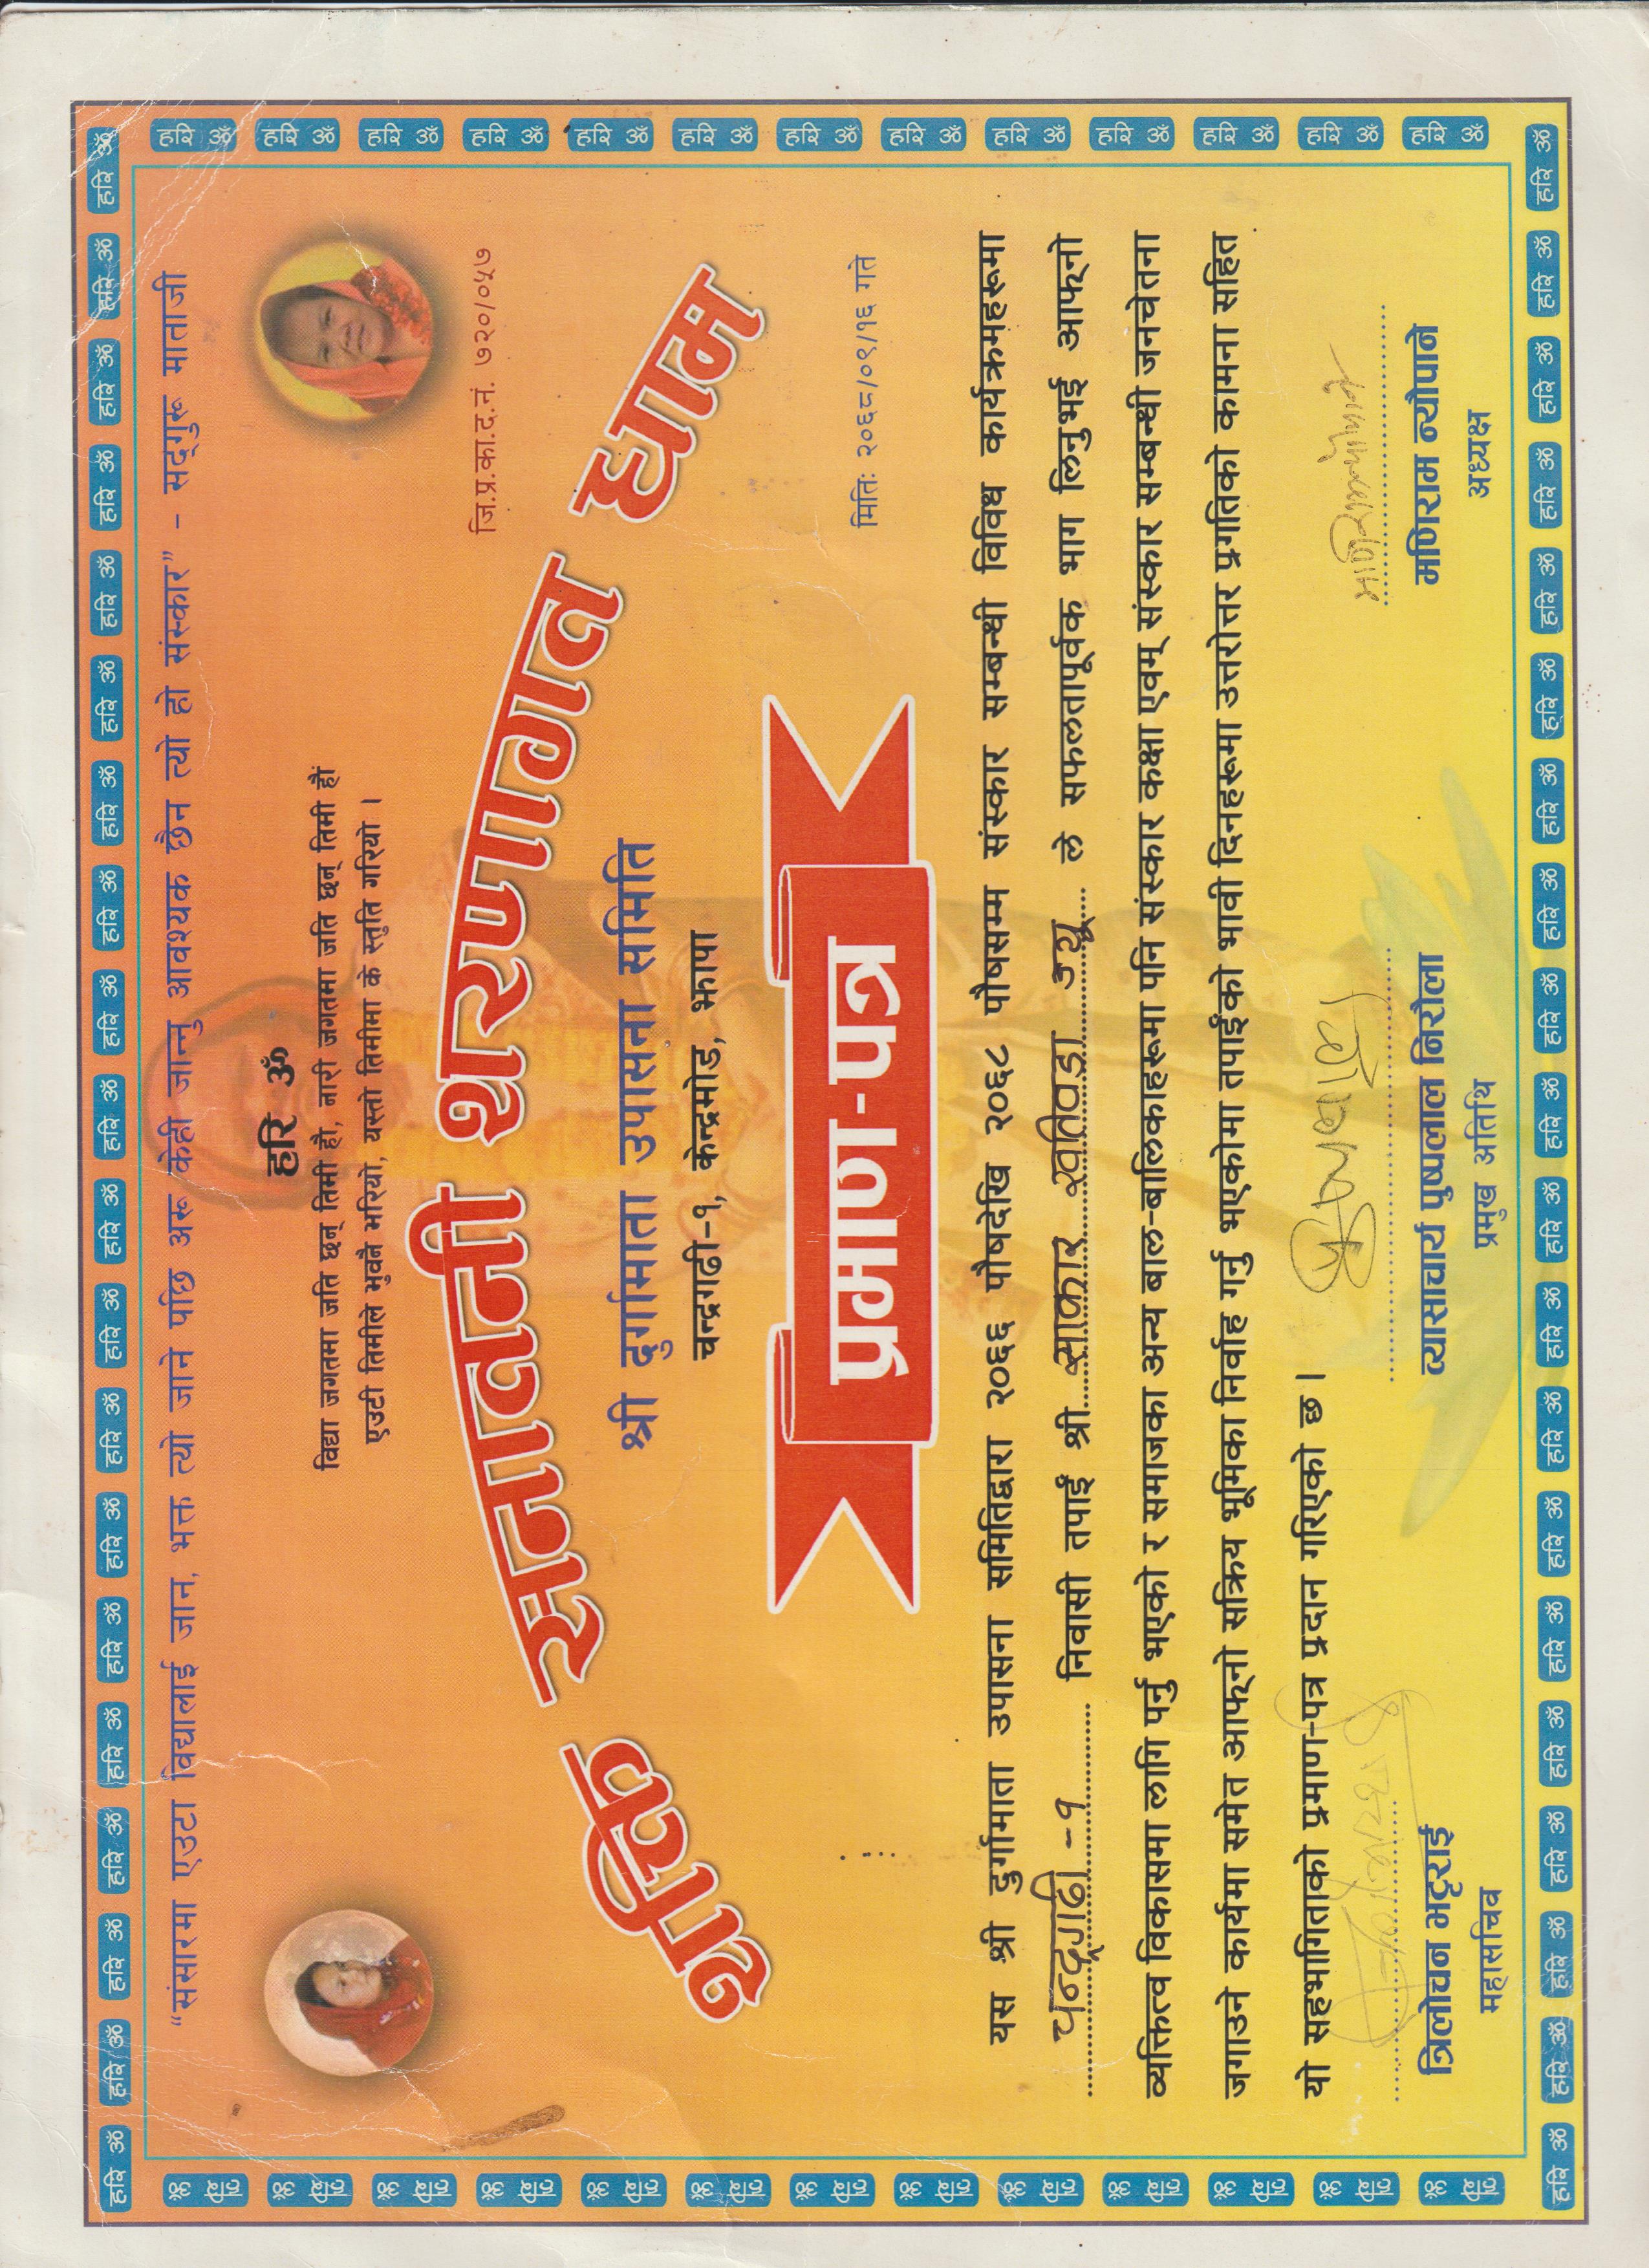 हरि ॐ हरि ॐ हरि ॐ हरि ॐ हरि ॐ हरि ॐ हरि ॐ हरि ॐ हरि ॐ हरि ॐ हरि ॐ हरि ॐ हरि ॐ हरि ॐ हरि ॐ हरि ॐ हरि ॐ हरि ॐ हरि ॐ हरि ॐ
“संसारमा एउटा विद्यालाई जान, भक्त त्यो जाने पछि अरू केही जान्नु आवश्यक छैन त्यो हो संस्कार” – सद्‌गुरू माताजी
हरि ॐ
विद्या जगतमा जति छन् तिमी हौ, नारी जगतमा जति छन् तिमी हौं
एउटी तिमीले भुवनै भरियो, यस्तो तिमीमा के स्तुति गरियो ।
जि.प्र.का.द.नं. ७२०/०५७
शक्ति सनातनी शरणागत धाम
श्री दुर्गामाता उपासना समिति
चन्द्रगढी-१, केन्द्रमोड, झापा
प्रमाण-पत्र
मितिः २०६८/०९/१६ गते
यस श्री दुर्गामाता उपासना समितिद्वारा २०६६ पौषदेखि २०६८ पौषसम्म संस्कार सम्बन्धी विविध कार्यक्रमहरूमा
चन्द्रगढी -१ निवासी तपाईं श्री साकार खतिवडा ज्यू ले सफलतापूर्वक भाग लिनुभई आफ्‌नो
व्यक्तित्व विकासमा लागि पर्नु भएको र समाजका अन्य बाल-बालिकाहरूमा पनि संस्कार कक्षा एवम् संस्कार सम्बन्धी जनचेतना
जगाउने कार्यमा समेत आफ्‌नो सक्रिय भूमिका निर्वाह गर्नु भएकोमा तपाईंको भावी दिनहरूमा उत्तरोत्तर प्रगतिको कामना सहित
यो सहभागिताको प्रमाण-पत्र प्रदान गरिएको छ ।
पुष्पलाल
मणिराम न्यौपाने
त्रिलोचन भट्टराई
व्यासाचार्य पुष्पलाल निरौला
मणिराम न्यौपाने
महासचिव
प्रमुख अतिथि
अध्यक्ष
हरि ॐ हरि ॐ हरि ॐ हरि ॐ हरि ॐ हरि ॐ हरि ॐ हरि ॐ हरि ॐ हरि ॐ हरि ॐ हरि ॐ हरि ॐ हरि ॐ हरि ॐ हरि ॐ हरि ॐ हरि ॐ हरि ॐ हरि ॐ